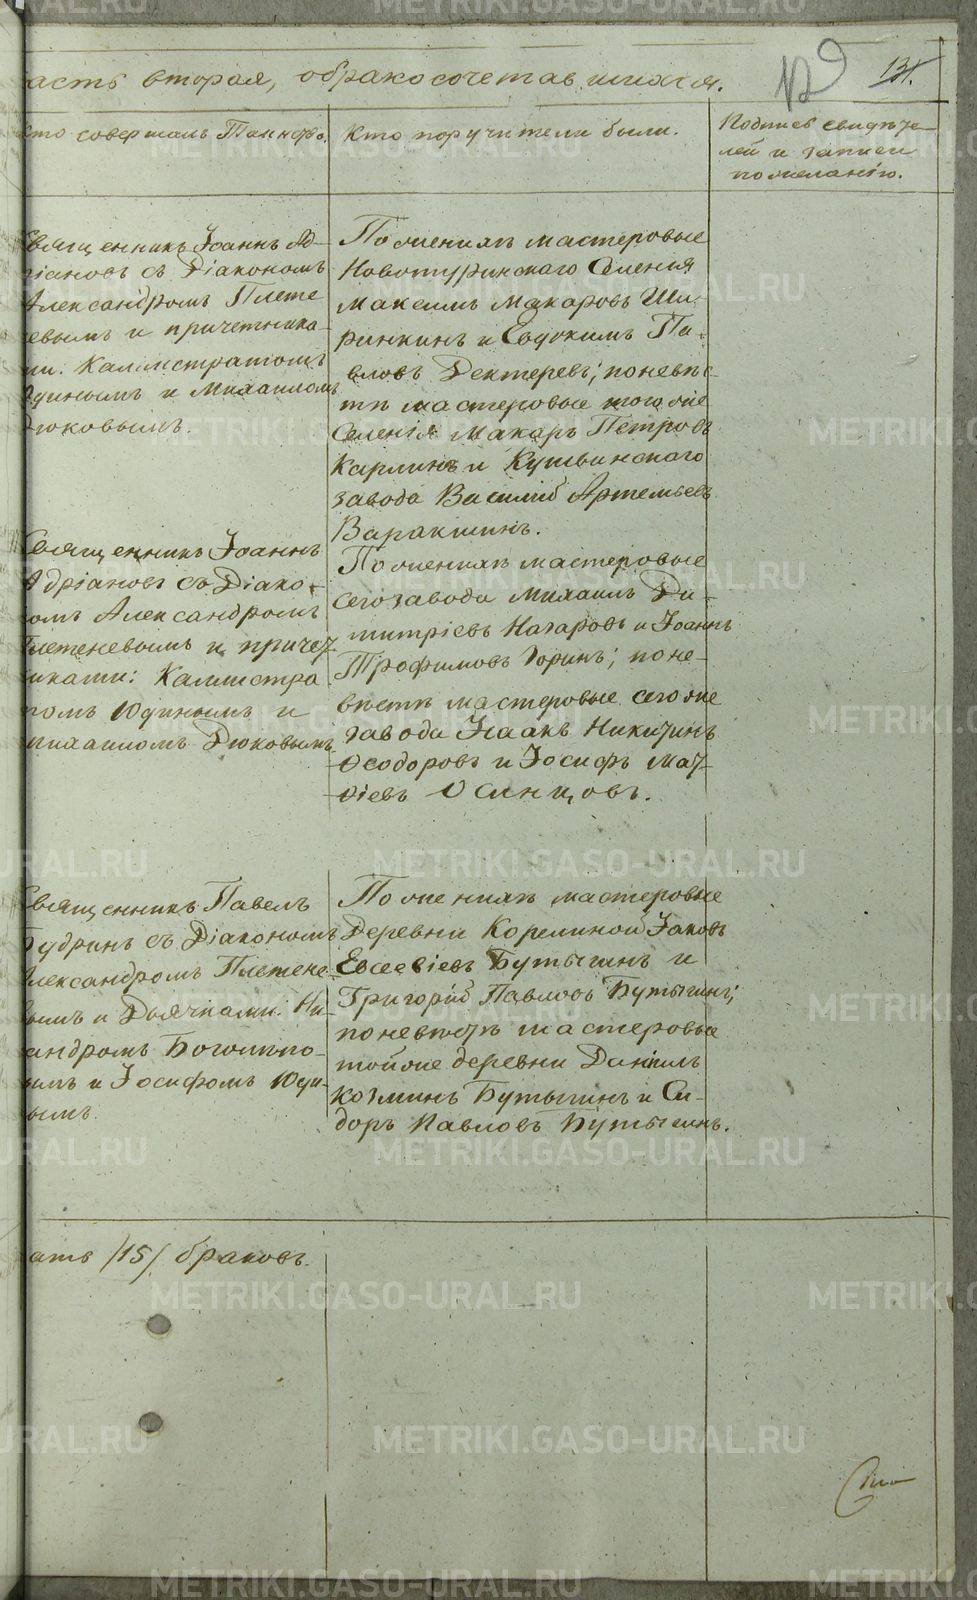 асть вторая, о бракосочетавшихся.
129
131.
кто совершалъ Таинство.
Кто поручители были.
Подпись свидѣте-
лей и записи
по желанію.
Священникъ Іоаннъ Ад-
ріановъ съ Діакономъ
Александромъ Плете
невымъ и причетника-
ми: Каллистратомъ
Юдинымъ и Михаиломъ
Дюковымъ.
По женихѣ мастеровые
Новотуринскаго Селенія
Максимъ Макаровъ Ши-
ринкинъ и Евдокимъ Па-
вловъ Дектеревъ; по невѣс-
тѣ мастеровые того же
Селенія Макаръ Петровъ
Карлинъ и Кушвинскаго
завода Василій Артемьевъ
Варакшинъ.
Священникъ Іоаннъ
Адріановъ съ Діако-
номъ Александромъ
Плетеневымъ и причет-
никами: Каллистра
томъ Юдинымъ и
Михаиломъ Дюковымъ
По женихѣ мастеровые
сего завода Михаилъ Ди-
митріевъ Назаровъ и Іоаннъ
Трофимовъ Горинъ; по не-
вѣстѣ мастеровые сего же
завода Исаакъ Никитинъ
Ѳеодоровъ и Іосифъ Мат-
ѳіевъ Осинцовъ.
Священникъ Павелъ
Будринъ съ Діакономъ
Александромъ Плетене-
вымъ и Дьячками: Ни-
андромъ Боголюбо-
вымъ и Іосифомъ Юди-
нымъ
По женихѣ мастеровые
Деревни Корелиной Іаковъ
Евсевіевъ Бутыгинъ и
Григорій Павловъ Бутыгинъ;
по невѣстѣ мастеровые
той же деревни Даніилъ
Козминъ Бутыгинъ и Си-
доръ Павловъ Бутыгинъ.
ать /15/ браковъ.